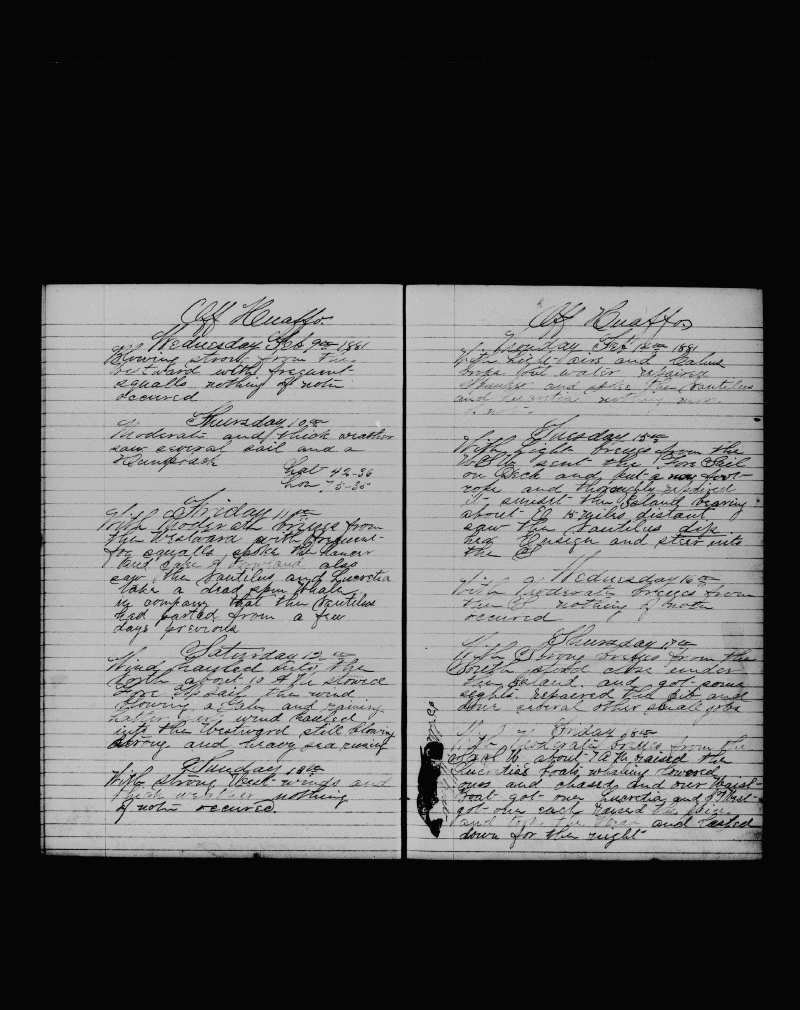 Off Huaffo.
Wednesday Feb 9th 1881
Blowing strong from the
westward with frequent
squalls nothing of note
occured
Thursday 10th
Moderate and thick weather
saw several sail and a
Humpback
Lat 42-36
Lon 75-35
Friday 11th
With moderate breezes from
the Westward with
squalls spoke the Lancer
and also
saw the Nautilus and Lucretia
take a dead sperm whale
in company that the Nautilus
had parted from a few
days previous
Saturday 12th
Wind hauled into the
North about 10 A M stowed
Fore Topsail the wind
blowing a Gale and raining
wind hauled
into the Westward still blowing
strong and heavy sea runing
Sunday 13th
With strong West winds and
thick weather nothing
of note occured.
Off Huaffo
Monday Feb 14th 1881
With light airs and Calms
water repaired
Spanker and spoke the Nautilus
and Lucretia nothing more
of note
Tuesday 15th
With Light breezes from the
sent the Fore Sail
on Deck and put a new foot-
rope and thoroughly repaired
it sunset the Island bearing
about 15 miles distant
saw the Nautilus dip
her Ensign and steer into
the
Wednesday 16th
With moderate breezes from
the nothing of note
occured
Thursday 17th
With Strong breezes from the
South stood close under
the Island and got some
sights repaired the Jib and
done several other small jobs
Friday 18th
With Moderate breezes from the
about 7 A M raised the
Lucretias boats whaling lowered
ours and chased and our Waist-
boat got one Lucretia and
got one each raised the
and took the and laid
down for the night